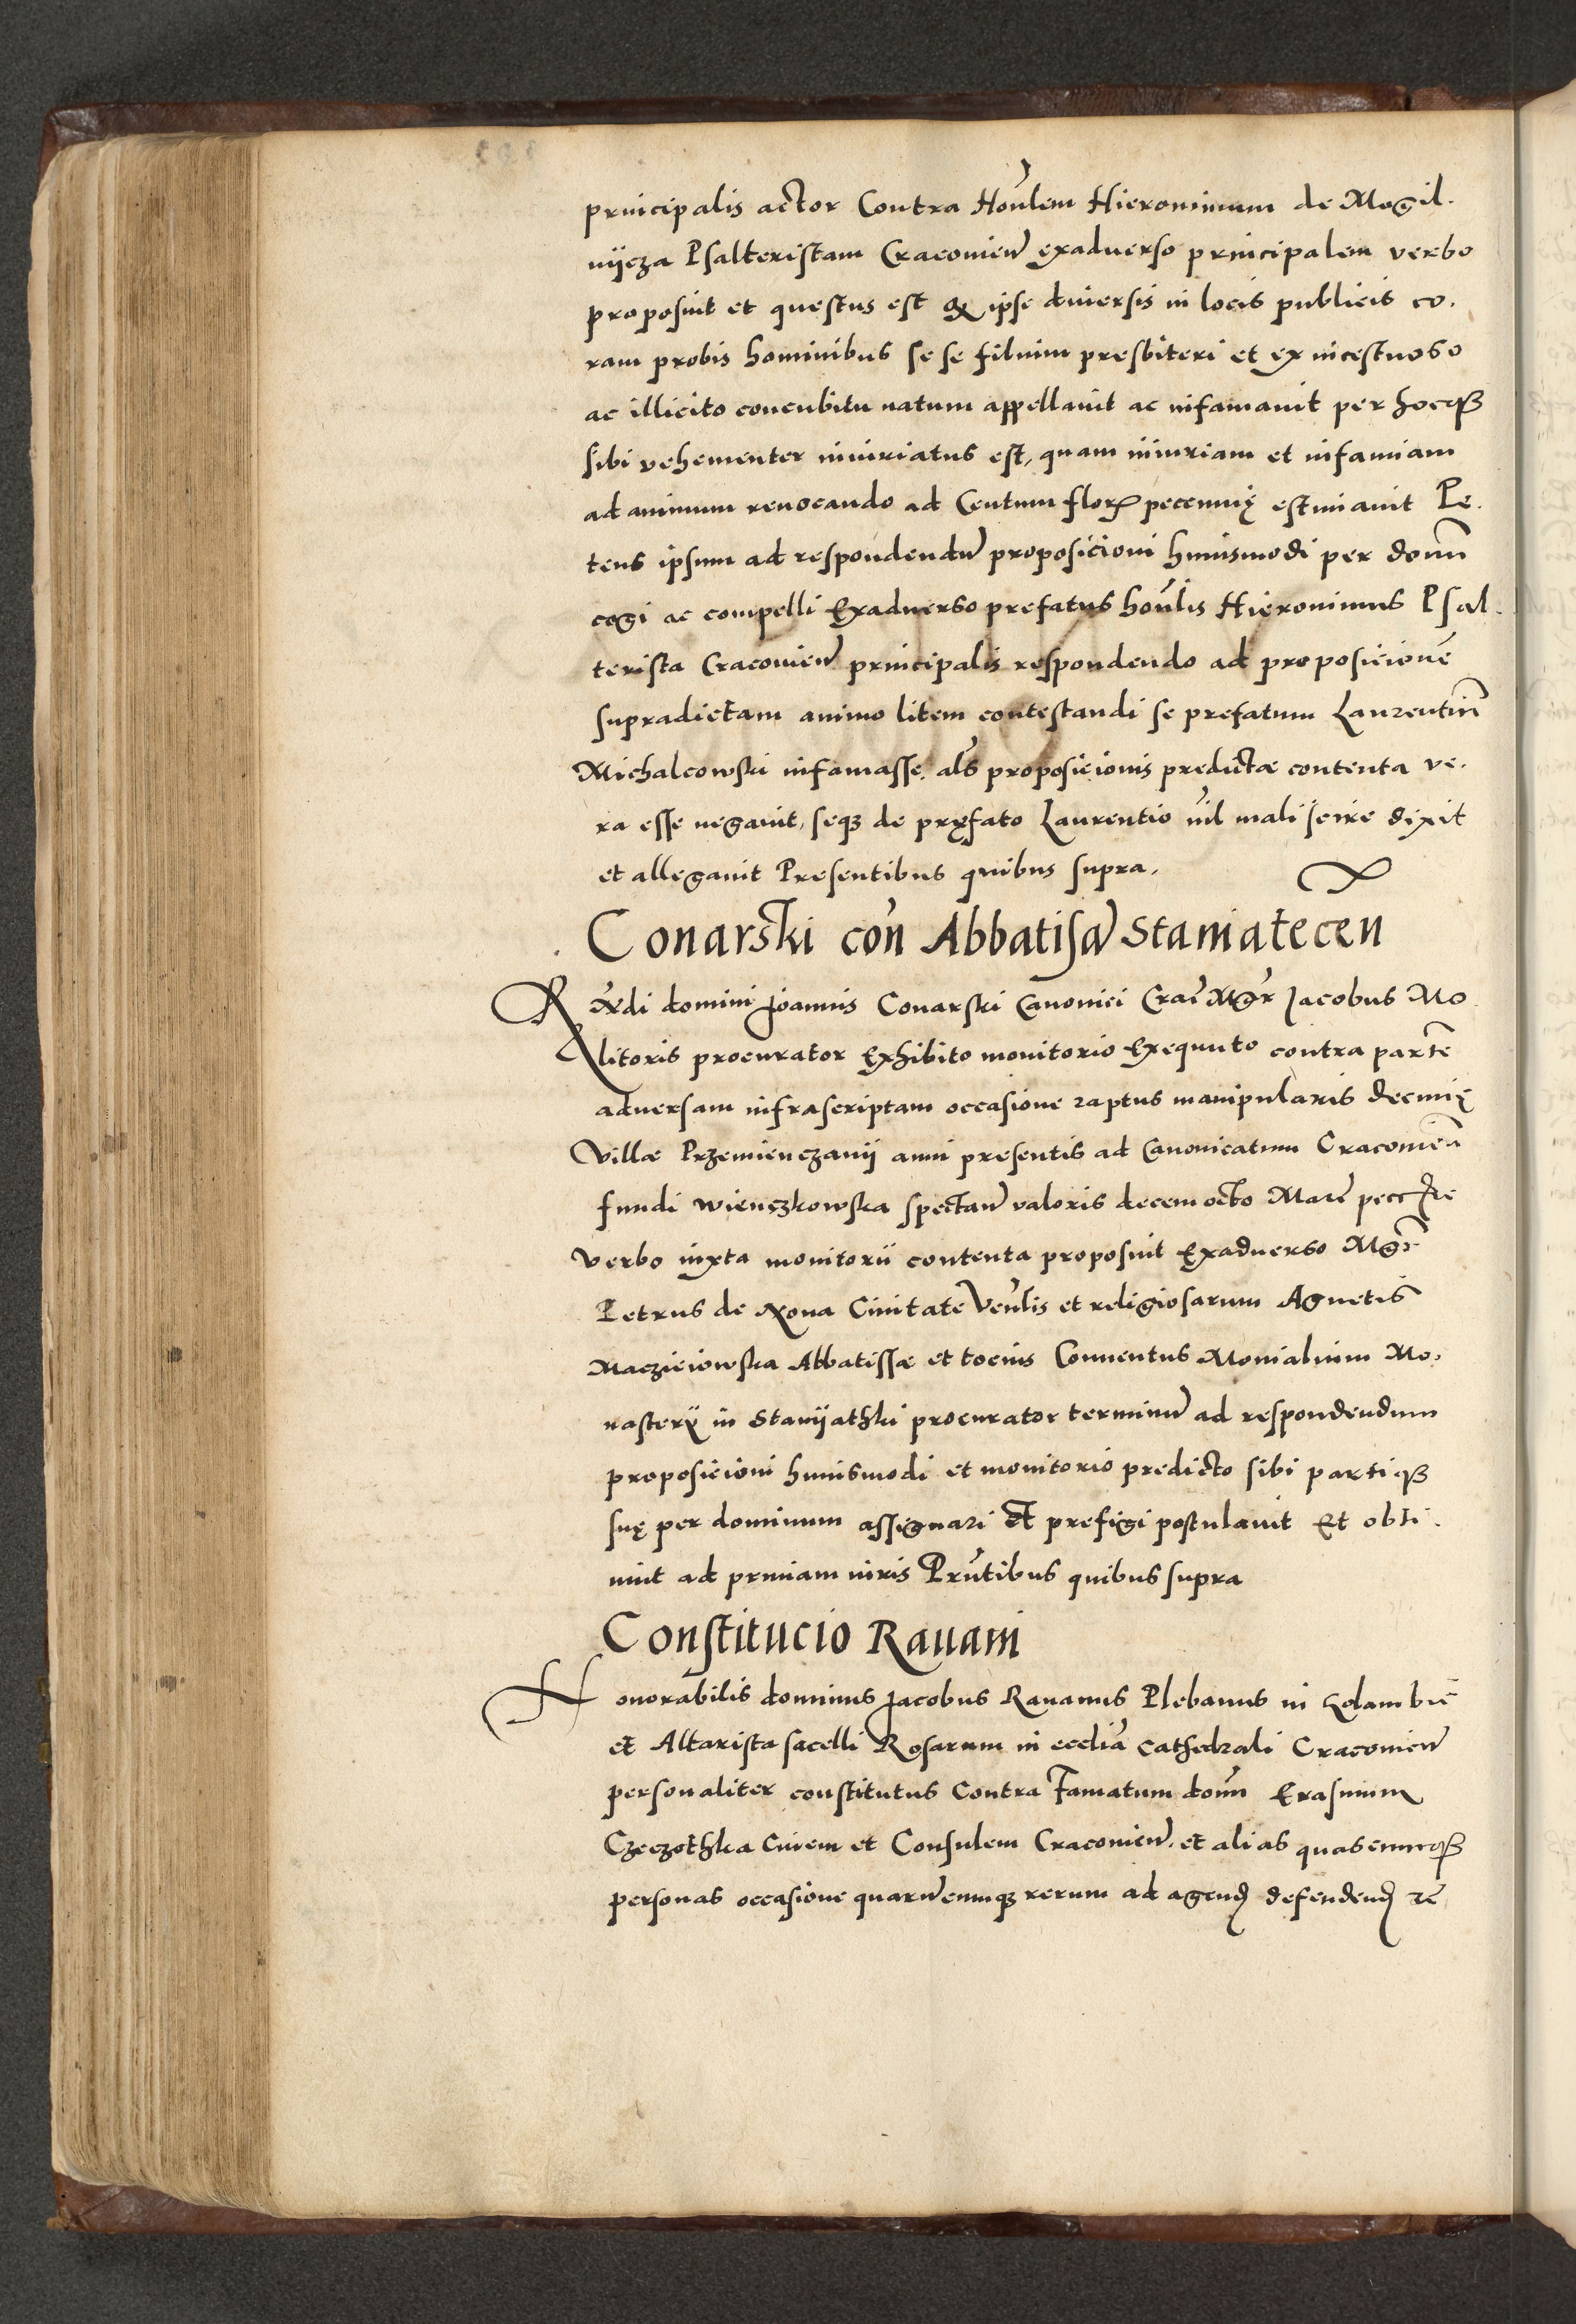 principalis actor Contra Honlem Hieronimum de Mogil.
nijcza Psalteristam Cracovien exadverso principalem verbo
proposuit et questus est q ipse diversis in locis publicis co.
ram probis hominibus se se filium presbiteri et ex incestuoso
ac illicito concubitu natum appellavit ac infamavit per hocq
sibi vehementer iniuriatus est, quam iniuriam et infamiam
ad animum revocando ad Centum flor pecunię estimavit Pe.
tens ipsum ad respondendū proposicioni huiusmodi per domn
cogi ac compelli Exadverso prefatus honlis Hieronimus Psal.
terista Cracovien principalis respondendo ad proposicionē
supradictam animo litem contestandi se prefatum Laurentiū
Michalcowski infamasse. als proposicionis predictæ contenta ve.
ra esse negavit, seq de pręfato Laurentio nil mali scire dixit
et allegavit Presentibus quibus supra.
Conarski con Abbatisā Staniatecen
Rendi domini Joannis Conarski Canonici Crac Mgr Jacobus Mo
litoris procurator Exhibito monitorio Exequuto contra partē
adversam infrascriptam occasione raptus manipularis decimę
Villæ Przemienczanij anni presentis ad Canonicatum Cracovien
fundi Wienczkowska spectan valoris decem octo Marc pecc
verbo iuxta monitorii contenta proposuit Exadverso Mgr
Petrus de Nova Civitate Venlis et religiosarum Agnetis
Maczieiowska Abbatissæ et tocius Conventus Monialium Mo,
nasterij in Stanijathki procurator terminū ad respondendum
proposicioni huiusmodi et monitorio predicto sibi partiq
suę per dominum assignari et prefigi postulavit Et obti.
nuit ad primam iuris Prntibus quibus supra
Constitucio Ravani
Honorabilis dominus Jacobus Ravanus Plebanus in
et Altarista sacelli Rosarum in ecclia Cathedrali Cracovien
personaliter constitutus Contra Famatum domn Erasmum
Czeczothka Civem et Consulem Cracovien. et alias quascunq
personas occasione quarūcumq rerum ad agend defendend rē